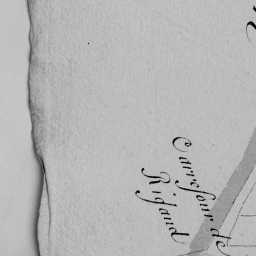 Carrefour de
Rigaud